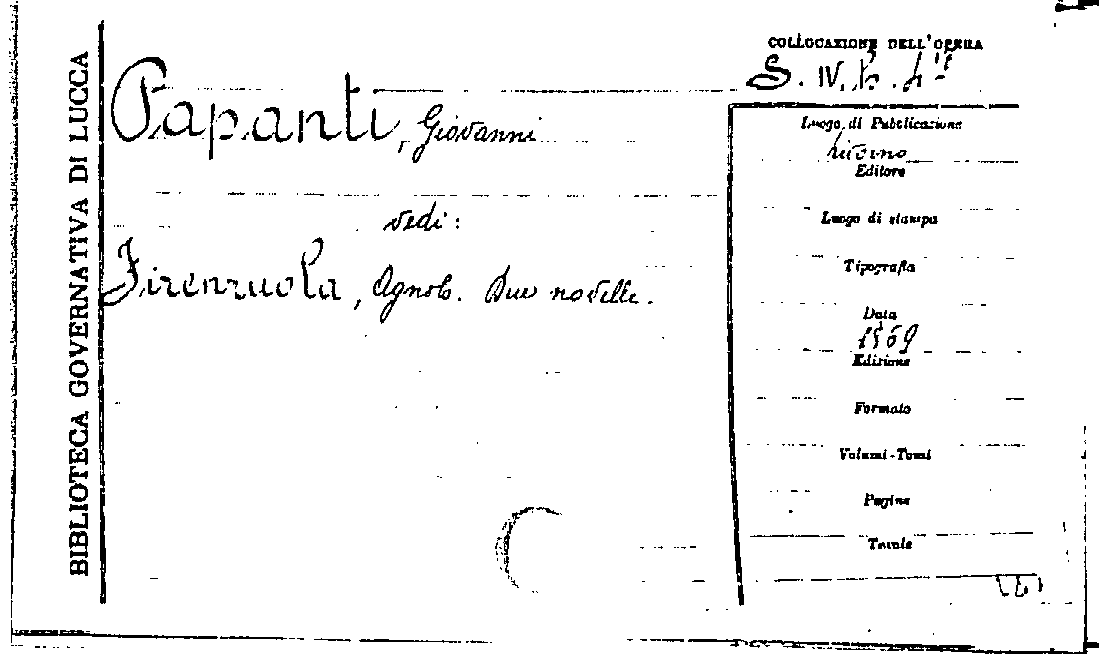 BIBLIOTECA GOVERNATIVA DI LUCCA
COLLOCAZIONE DELL'OPERA
S. IV. b.
Papanti, Giovanni
vedi:
Firenzuola, Agnolo. Due novelle.
Luogo di Pubblicazione
Livorno
Editore
Luogo di stampa
Tipografia
Data
1869
Edizione
Formato
Volumi-Tomi
Pagine
Tavole